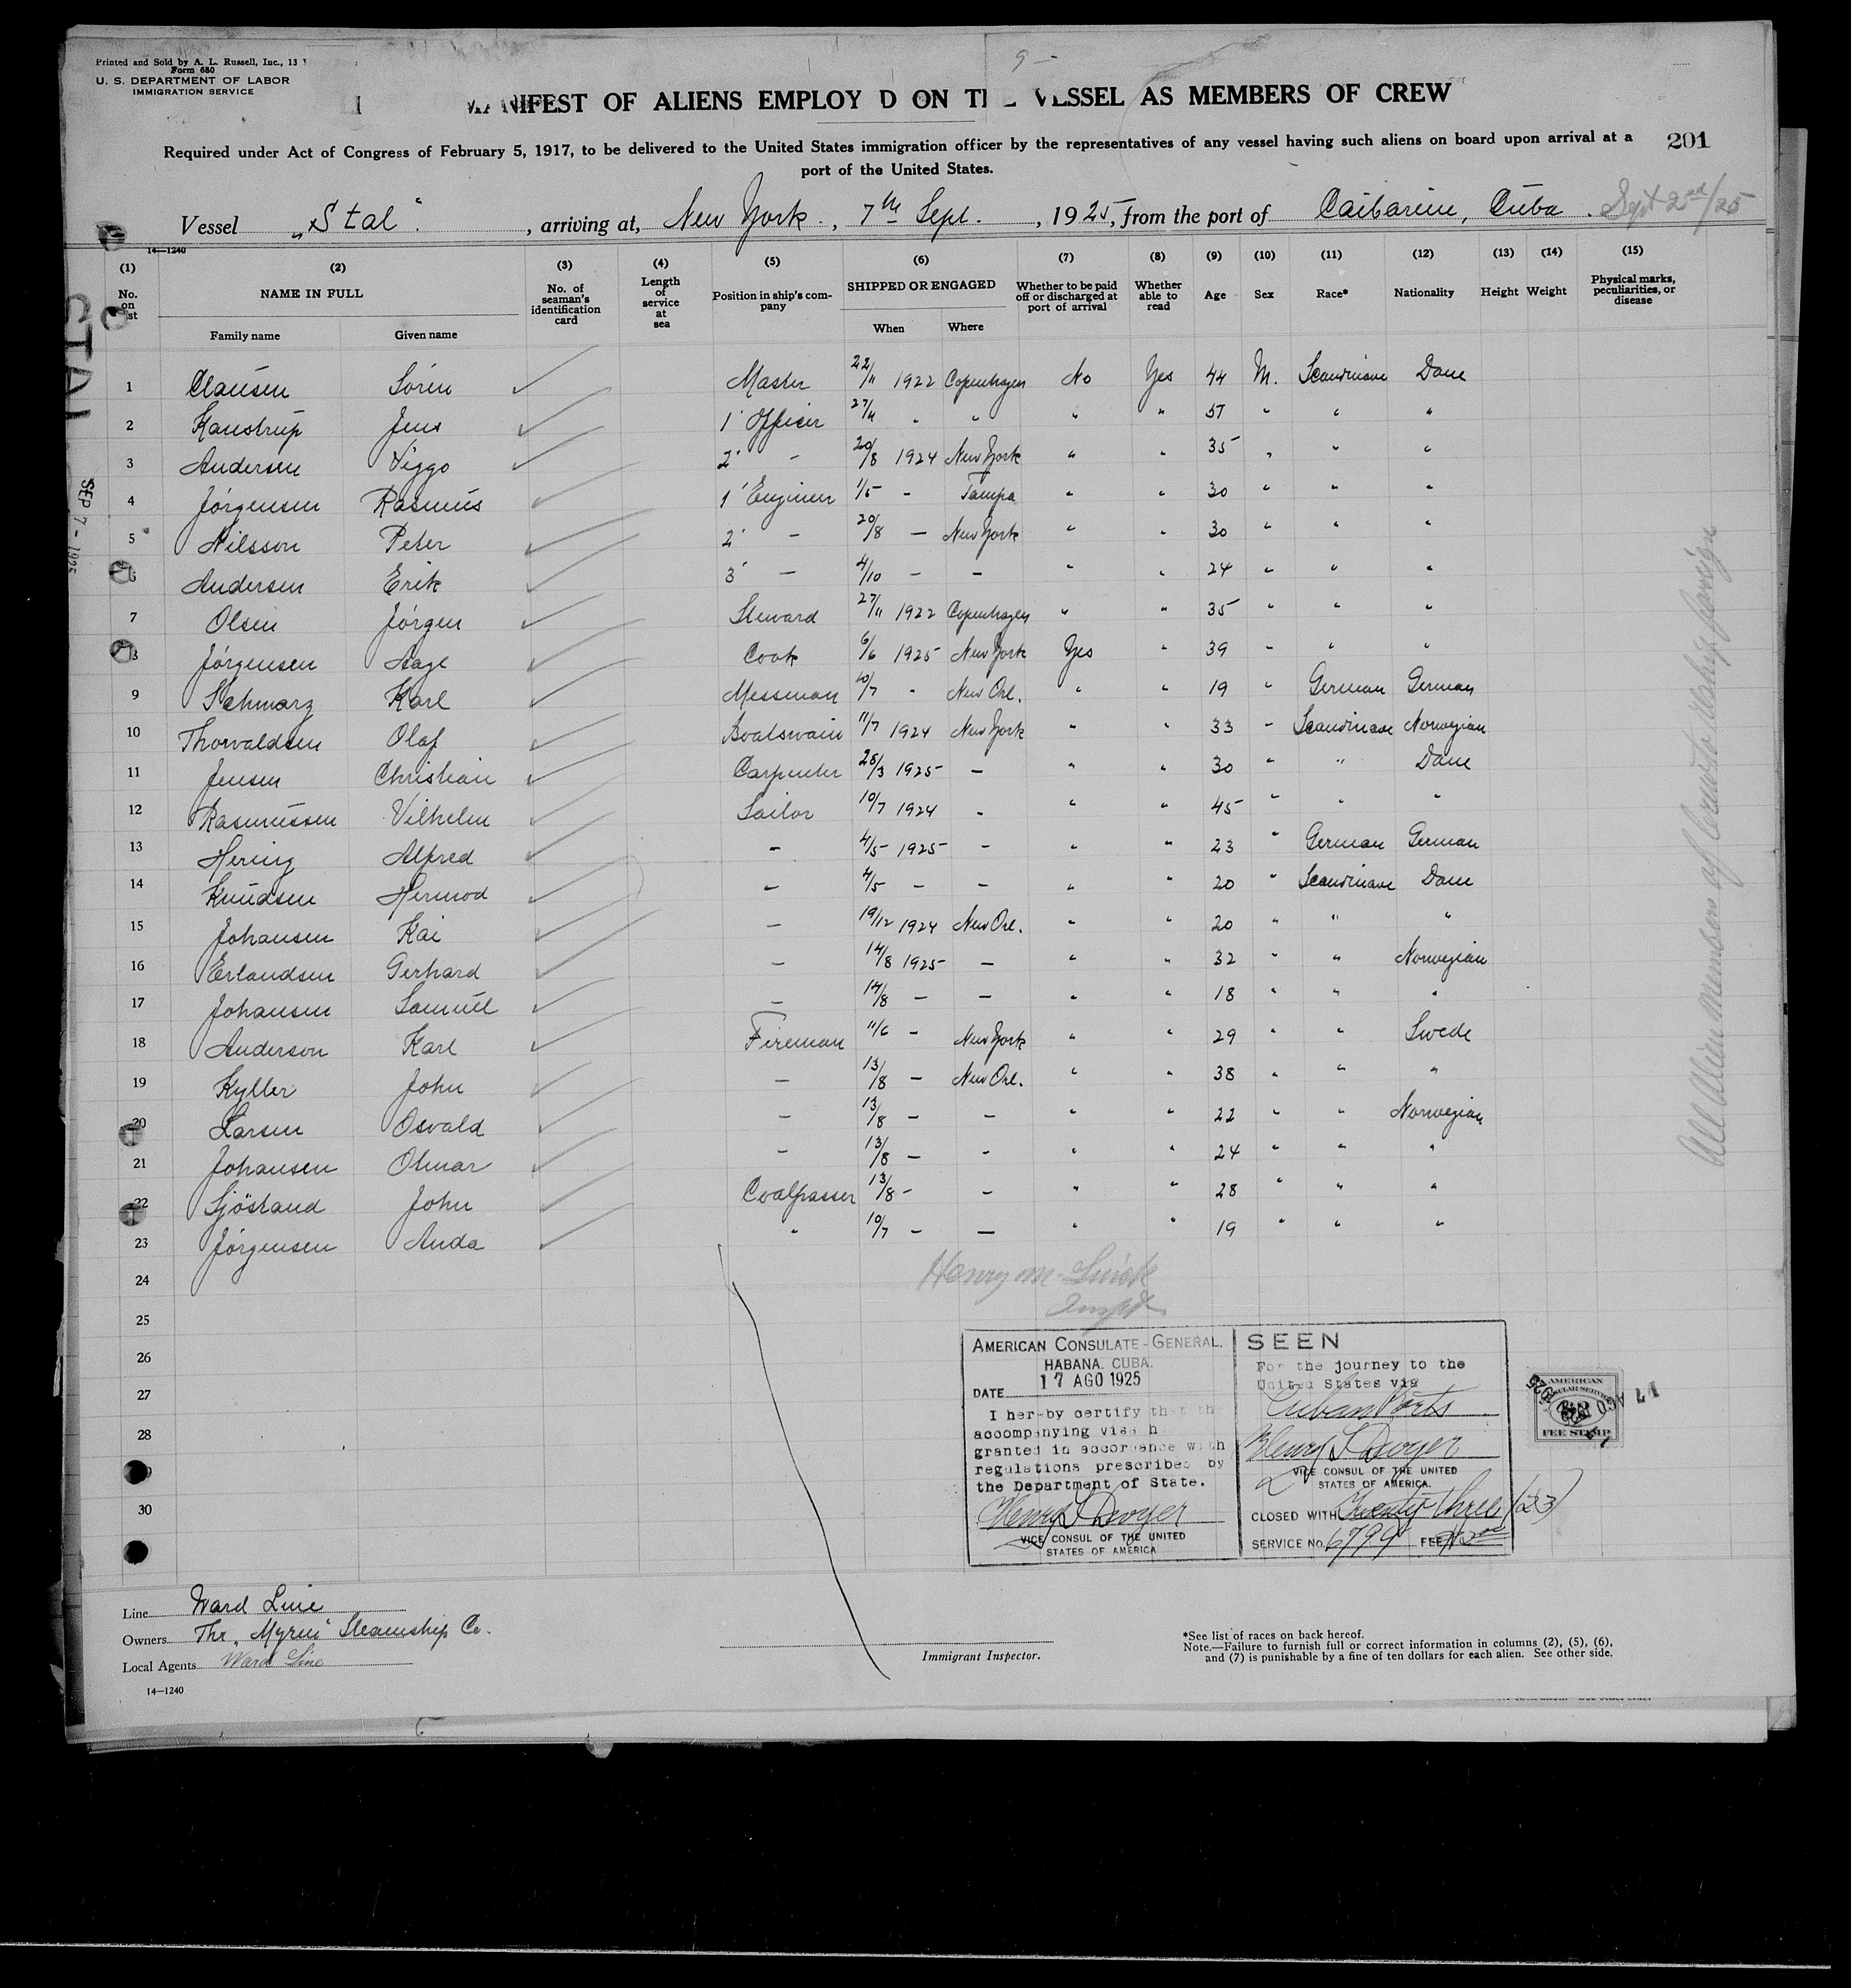 Printed and Sold by A. L. Russell, Inc., 13
Form 680
U. S. DEPARTMENT OF LABOR
IMMIGRATION SERVICE
9 —
MANIFEST OF ALIENS EMPLOY D ON THE VESSEL AS MEMBERS OF CREW
201
Required under Act of Congress of February 5, 1917, to be delivered to the United States immigration officer by the representatives of any vessel having such aliens on board upon arrival at a
port of the United States.
Vessel „Stal“, arriving at, New York, 7th Sept., 1925, from the port of Caibarien, Cuba. Sept 2nd/25
14—1240
(1) No. on list (2) NAME IN FULL Family name Given name (3) No. of seaman's identification card (4) Length of service at sea (5) Position in ship's company (6) SHIPPED OR ENGAGED When Where (7) Whether to be paid off or discharged at port of arrival (8) Whether able to read (9) Age (10) Sex (11) Race* (12) Nationality (13) Height (14) Weight (15) Physical marks, peculiarities, or disease
1 Clausen Sören ✓ Master 22/11 1922 Copenhagen No Yes 44 M. Scandinave Dane
2 Kanstrup Jens ✓ 1' Officer 27/11 " " " " 57 " " "
3 Andersen Viggo ✓ 2' — 20/8 1924 New York " " 35 " " "
4 Jörgensen Rasmus ✓ 1' Engineer 1/5 - Tampa " " 30 " " "
5 Nilsson Peter ✓ 2' — 20/8 — New York " " 30 " " "
6 Andersen Erik ✓ 3' — 4/10 — — " " 24 " " "
7 Olsen Jörgen ✓ Steward 27/11 1922 Copenhagen " " 35 " " "
8 Jörgensen Aage ✓ Cook 6/6 1925 New York Yes " 39 " " "
9 Schwarz Karl ✓ Messman 10/7 " New Orl. " " 19 " German German
10 Thorvaldsen Olaf ✓ Boatswain 11/7 1924 New York " " 33 " Scandinave Norwegian
11 Jensen Christian ✓ Carpenter 28/3 1925 — " " 30 " " Dane
12 Rasmussen Vilhelm ✓ Sailor 10/7 1924 - " " 45 " " "
13 Hering Alfred ✓ — 4/5 1925 — " " 23 " German German
14 Knudsen Hermod ✓ — 4/5 — — " " 20 " Scandinave Dane
15 Johansen Kai ✓ — 19/12 1924 New Orl. " " 20 " " "
16 Erlandsen Gerhard ✓ — 14/8 1925 — " " 32 " " Norwegian
17 Johansen Samuel ✓ — 14/8 — — " " 18 " " "
18 Anderson Karl ✓ Fireman 11/6 — New York " " 29 " " Swede
19 Kyller John ✓ — 13/8 — New Orl. " " 38 " " "
20 Larsen Osvald ✓ — 13/8 — — " " 22 " " Norwegian
21 Johansen Olmar ✓ — 13/8 — - " " 24 " " "
22 Sjöstrand John ✓ Coalpasser 13/8 - — " " 28 " " "
23 Jörgensen Anda ✓ " 10/7 — — " " 19 " " "
24
25
26
27
28
30
STAL
SEP 7 - 1925
Henry M.
Inspt
AMERICAN CONSULATE-GENERAL,
HABANA, CUBA.
DATE 17 AGO 1925
I her-by certify that the
accompanying visa h
granted in accordance with
regulations prescribed by
the Department of State.
Henry S Dwyer
VICE CONSUL OF THE UNITED
STATES OF AMERICA
SEEN
For the journey to the
United States via
Cuban Ports
Henry S Dwyer
VICE CONSUL OF THE UNITED
STATES OF AMERICA.
CLOSED WITH Twenty-three (23)
SERVICE No. 6799 FEE $2.00
AMERICAN
CONSULAR SERVICE
FEE STAMP
17 AGO 1925
All Alien members of Crew to reship foreign
Line Ward Line
Owners The „Myren“ Steamship Co.
Local Agents Ward Line
14—1240
Immigrant Inspector.
*See list of races on back hereof.
Note.—Failure to furnish full or correct information in columns (2), (5), (6),
and (7) is punishable by a fine of ten dollars for each alien. See other side.